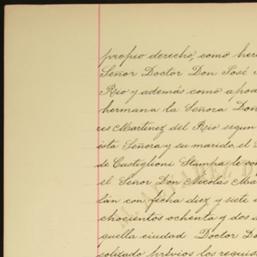 propio derecho, como here
Señor Doctor Don José
Rio y además como apod
hermana la Señora Don
res Martinez del Rio segun
esta Señora y su marido, el
de Castiglioni Stampa, le con
el Señor Don Nicolas Ma
lan con fecha diez y siete
chocientos ochenta y dos
quella ciudad Doctor D
solitado prévios los requis